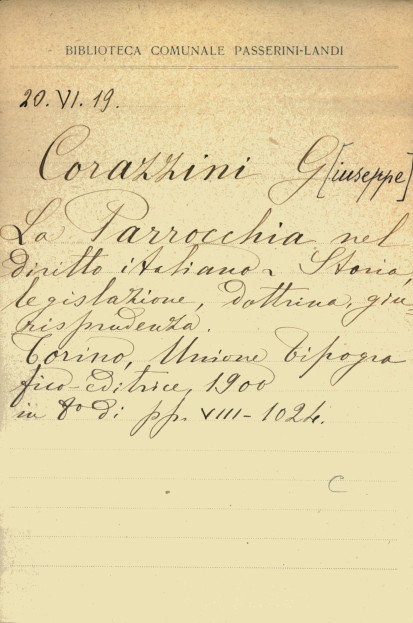 BIBLIOTECA COMUNALE PASSERINI-LANDI
20.VI.19.
Corazzini G[iuseppe]
La Parrocchia nel
diritto italiano. Storia,
legislazione, dottrina, giu-
risprudenza.
Torino, Unione tipogra
fico-editrice, 1900
in 8º di pp. VIII-1024.
C